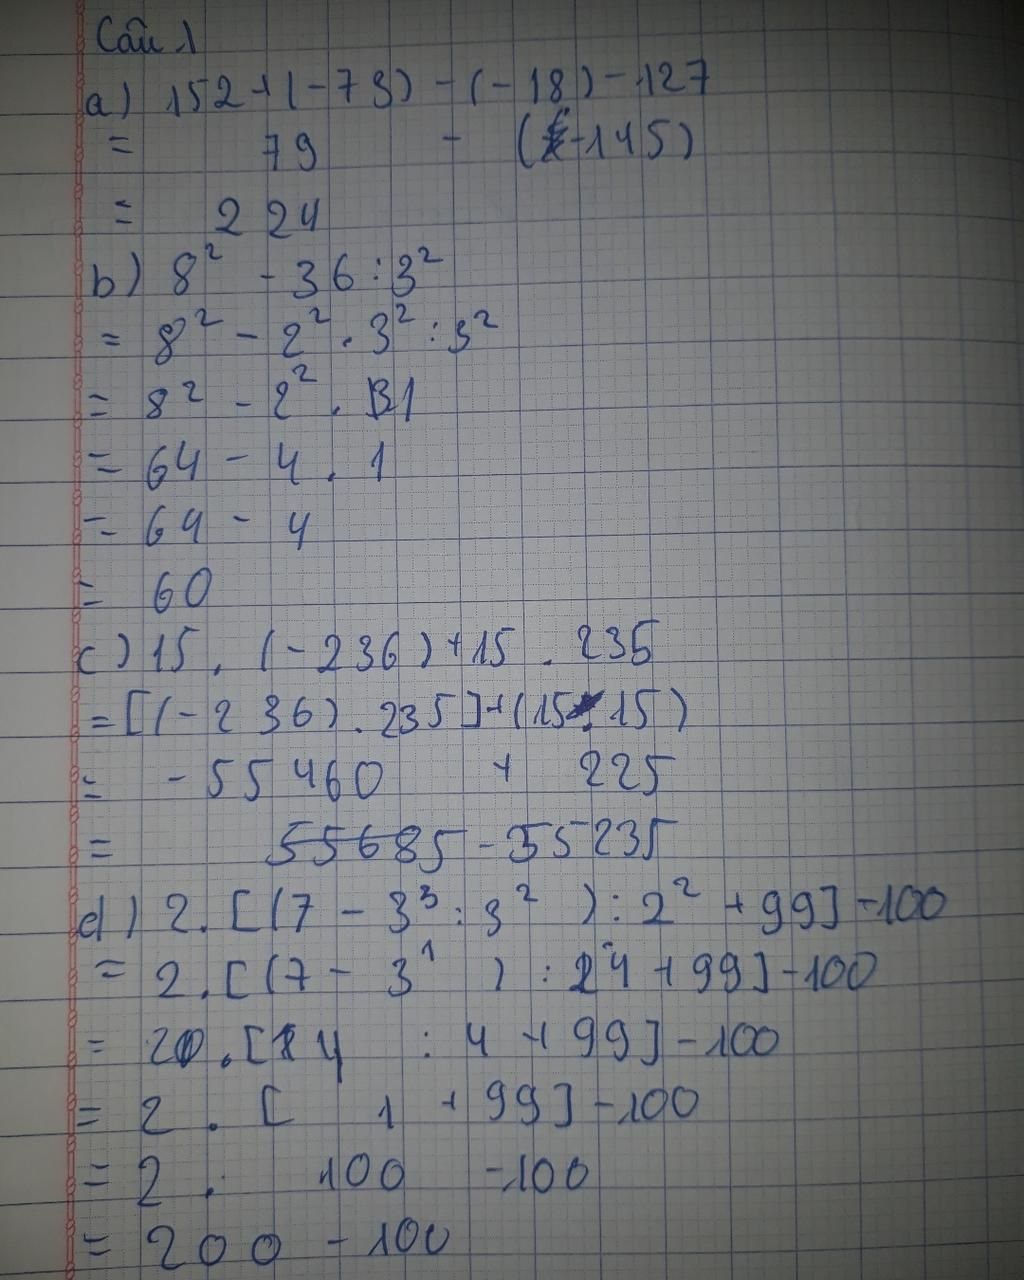 Câu 1
a) 152 + (-73) - (-18) - 127
= 79 - (-145)
= 224
b) 8² - 36 : 3²
= 8² - 2² . 3² : 3²
= 8² - 2² . 1
= 64 - 4 . 1
= 64 - 4
= 60
c) 15 . (-236) + 15 . 235
= [(-236) . 235] + (15 . 15)
= -55460 + 225
= 55685 -55235
d) 2. [(7 - 3³ : 3² ) : 2² + 99] - 100
= 2. [(7 - 3¹ ) : 4 + 99] - 100
= 2 . [4 : 4 + 99] - 100
= 2 . [ 1 + 99] - 100
= 2 . 100 - 100
= 200 - 100